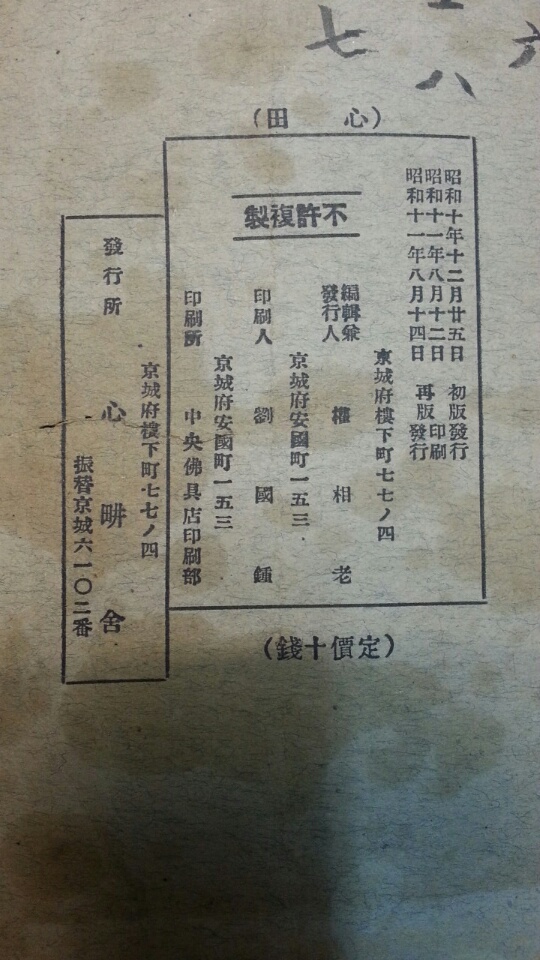 七
八
六
(心田)
昭和十年十二月廿五日 初版發行
昭和十一年八月十二日 印刷
昭和十一年八月十四日 再版發行
不許複製
京城府樓下町七七ノ四
編輯兼
發行人 權相老
京城府安國町一五三
印刷人 劉國鍾
京城府安國町一五三
印刷所 中央佛具店印刷部
京城府樓下町七七ノ四
發行所 心畊舍
振替京城六一〇二番
(定價十錢)